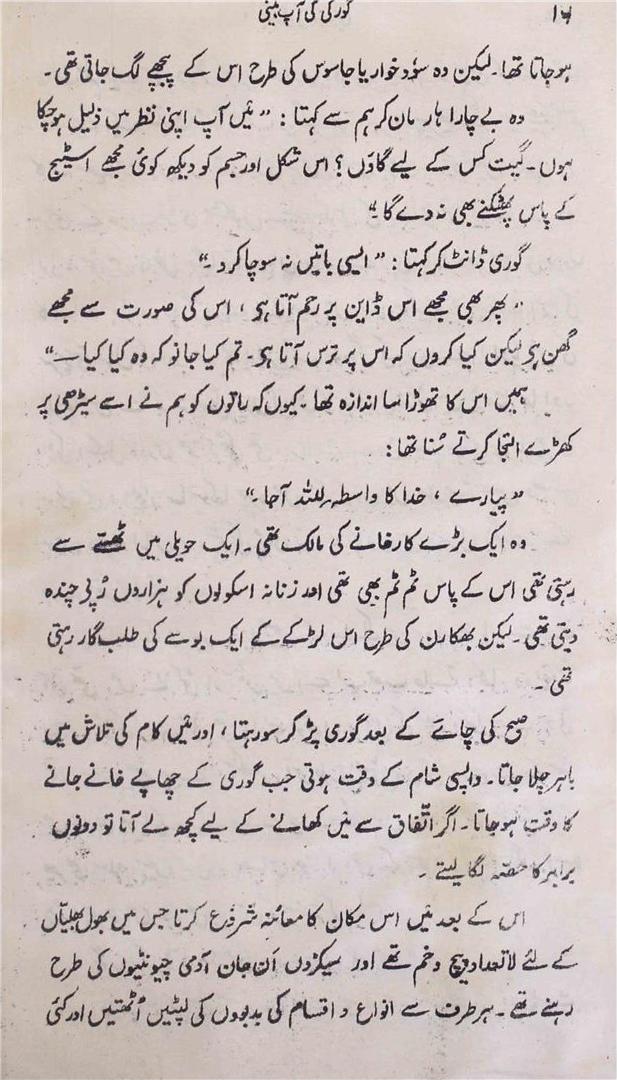 ۱۶
گورکی کی آپ بیتی
ہوجاتا تھا۔ لیکن وہ سوُد خوار یا جاسوس کی طرح اس کے پیچھے لگ جاتی تھی۔
وہ بے چارا ہار مان کر ہم سے کہتا : ” میَں آپ اپنی نظر میں ذلیل ہوچکا
ہوں۔ گیت کس کے لیے گاؤں؟ اس شکل اور جسم کو دیکھ کوئی مجھے اسٹیج
کے پاس پھٹکنے بھی نہ دے گا۔“
گوری ڈانٹ کر کہتا : ” ایسی باتیں نہ سوچا کرو۔“
” پھر بھی مجھے اس ڈاین پر رحم آتا ہی، اس کی صورت سے مجھے
گھن ہی لیکن کیا کروں کہ اس پر ترس آتا ہی۔ تم کیا جانو کہ وہ کیا کیا —“
ہمیں اس کا تھوڑا سا اندازہ تھا۔ کیوں کہ راتوں کو ہم نے اسے سیڑھی پر
کھڑے التجا کرتے سُنا تھا:
” پیارے ، خدا کا واسطہ للّٰلہ آجا۔“
وہ ایک بڑے کارخانے کی مالک تھی۔ ایک حویلی میں ٹھسّے سے
رہتی تھی اس کے پاس ٹم ٹم بھی تھی اور زنانہ اسکولوں کو ہزاروں رُپیَ چندہ
دیتی تھی۔ لیکن بھکارن کی طرح اس لڑکے کے ایک بوسے کی طلب گار رہتی
تھی۔
صبح کی چائے کے بعد گوری پڑ کر سو رہتا، اور میَں کام کی تلاش میں
باہر چلا جاتا۔ واپسی شام کے وقت ہوتی جب گوری کے چھاپے خانے جانے
کا وقت ہوجاتا۔ اگر اتّفاق سے میَں کھانے کے لیے کچھ لے آتا تو دونوں
برابر کا حصّہ لگا لیتے۔
اس کے بعد میَں اس مکان کا معائنہ شروُع کرتا جس میں بھول بھلیّاں
کے لئے لاتعداد پیچ و خم تھے اور سیکڑوں اَن جان آدمی چیونٹیوں کی طرح
رہتے تھے۔ ہر طرف سے انواع و اقسام کی بدبوؤں کی لپٹیں اُٹھتیں اور کئی